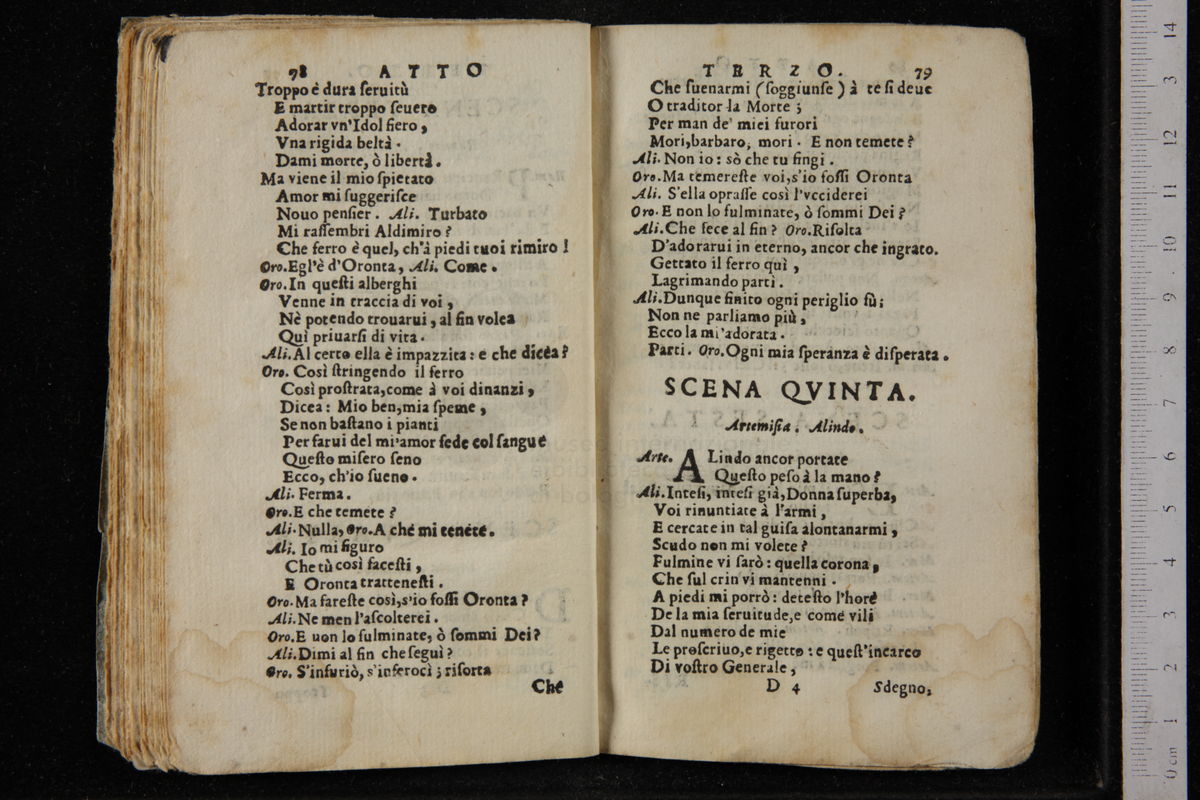 78 ATTO
Troppo è dura ſeruitù
E martir troppo ſeuero
Adorar vn'Idol fiero,
Vna rigida beltà.
Dami morte, ò libertà.
Ma viene il mio ſpietato
Amor mi ſuggeriſce
Nouo penſier. Ali. Turbato
Mi raſſembri Aldimiro?
Che ferro è quel, ch'à piedi tuoi rimiro!
Oro.Egl'è d'Oronta, Ali. Come.
Oro.In queſti alberghi
Venne in traccia di voi,
Nè potendo trouarui, al fin volea
Quì priuarſi di vita.
Ali.Al certo ella è impazzita: e che dicèa?
Oro. Così ſtringendo il ferro
Così proſtrata,come à voi dinanzi,
Dicea: Mio ben,mia ſpeme,
Se non baſtano i pianti
Per farui del mi'amor fede col ſangue
Queſto miſero ſeno
Ecco, ch'io ſueno.
Ali. Ferma.
Oro.E che temete?
Ali.Nulla, Oro.A che mi tenete.
Ali. Io mi figuro
Che tù così faceſti,
E Oronta tratteneſti.
Oro.Ma fareſte così,s'io foſſi Oronta?
Ali.Ne men l'aſcolterei.
Oro.E uon lo fulminate, ò ſommi Dei?
Ali.Dimi al fin che ſeguì?
Oro. S'infuriò, s'inferocì; riſorta
Che
TERZO. 79
Che ſuenarmi (ſoggiunſe) à te ſi deue
O traditor la Morte;
Per man de' miei furori
Mori,barbaro, mori. E non temete?
Ali. Non io: sò che tu fingi.
Oro.Ma temereſte voi,s'io foſſi Oronta
Ali. S'ella opraſſe così l'vcciderei
Oro.E non lo fulminate, ò ſommi Dei?
Ali.Che fece al fin? Oro.Riſolta
D'adorarui in eterno, ancor che ingrato.
Gettato il ferro quì,
Lagrimando partì.
Ali.Dunque finito ogni periglio fù;
Non ne parliamo più,
Ecco la mi'adorata.
Parti. Oro.Ogni mia ſperanza è diſperata.
SCENA QVINTA.
Artemiſia. Alindo.
Arte. ALindo ancor portate
Queſto peſo à la mano?
Ali.Inteſi, inteſi già,Donna ſuperba,
Voi rinuntiate à l'armi,
E cercate in tal guiſa alontanarmi,
Scudo non mi volete?
Fulmine vi farò: quella corona,
Che ſul crin vi mantenni.
A piedi mi porrò: deteſto l'hore
De la mia ſeruitude,e come vili
Dal numero de mie
Le proſcriuo,e rigetto: e queſt'incarco
Di voſtro Generale,
D 4 Sdegno,